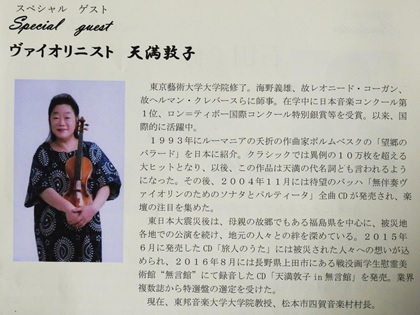 スペシャル ゲスト
Special guest
ヴァイオリニスト 天満敦子
東京藝術大学大学院修了。海野義雄、故レオニード・コーガン、
故ヘルマン・クレバースらに師事。在学中に日本音楽コンクール第
1位、ロン=ティボー国際コンクール特別銀賞等を受賞。以来、国
際的に活躍中。
1993年にルーマニアの夭折の作曲家ポルムベスクの「望郷の
バラード」を日本に紹介。クラシックでは異例の10万枚を超える
大ヒットとなり、以後、この作品は天満の代名詞とも言われるよう
になった。その後、2004年11月には待望のバッハ「無伴奏ヴ
ァイオリンのためのソナタとパルティータ」全曲CDが発売され、楽
壇の注目を集めた。
東日本大震災後は、母親の故郷でもある福島県を中心に、被災地
各地での公演を続け、地元の人々との絆を深めている。2015年
6月に発売したCD「旅人のうた」には被災された人々への想いが込
められ、2016年8月には長野県上田市にある戦没画学生慰霊美
術館“無言館”にて録音したCD「天満敦子in無言館」を発売。業界
複数誌から特選盤の選定を受けた。
現在、東邦音楽大学大学院教授、松本市四賀音楽村村長。